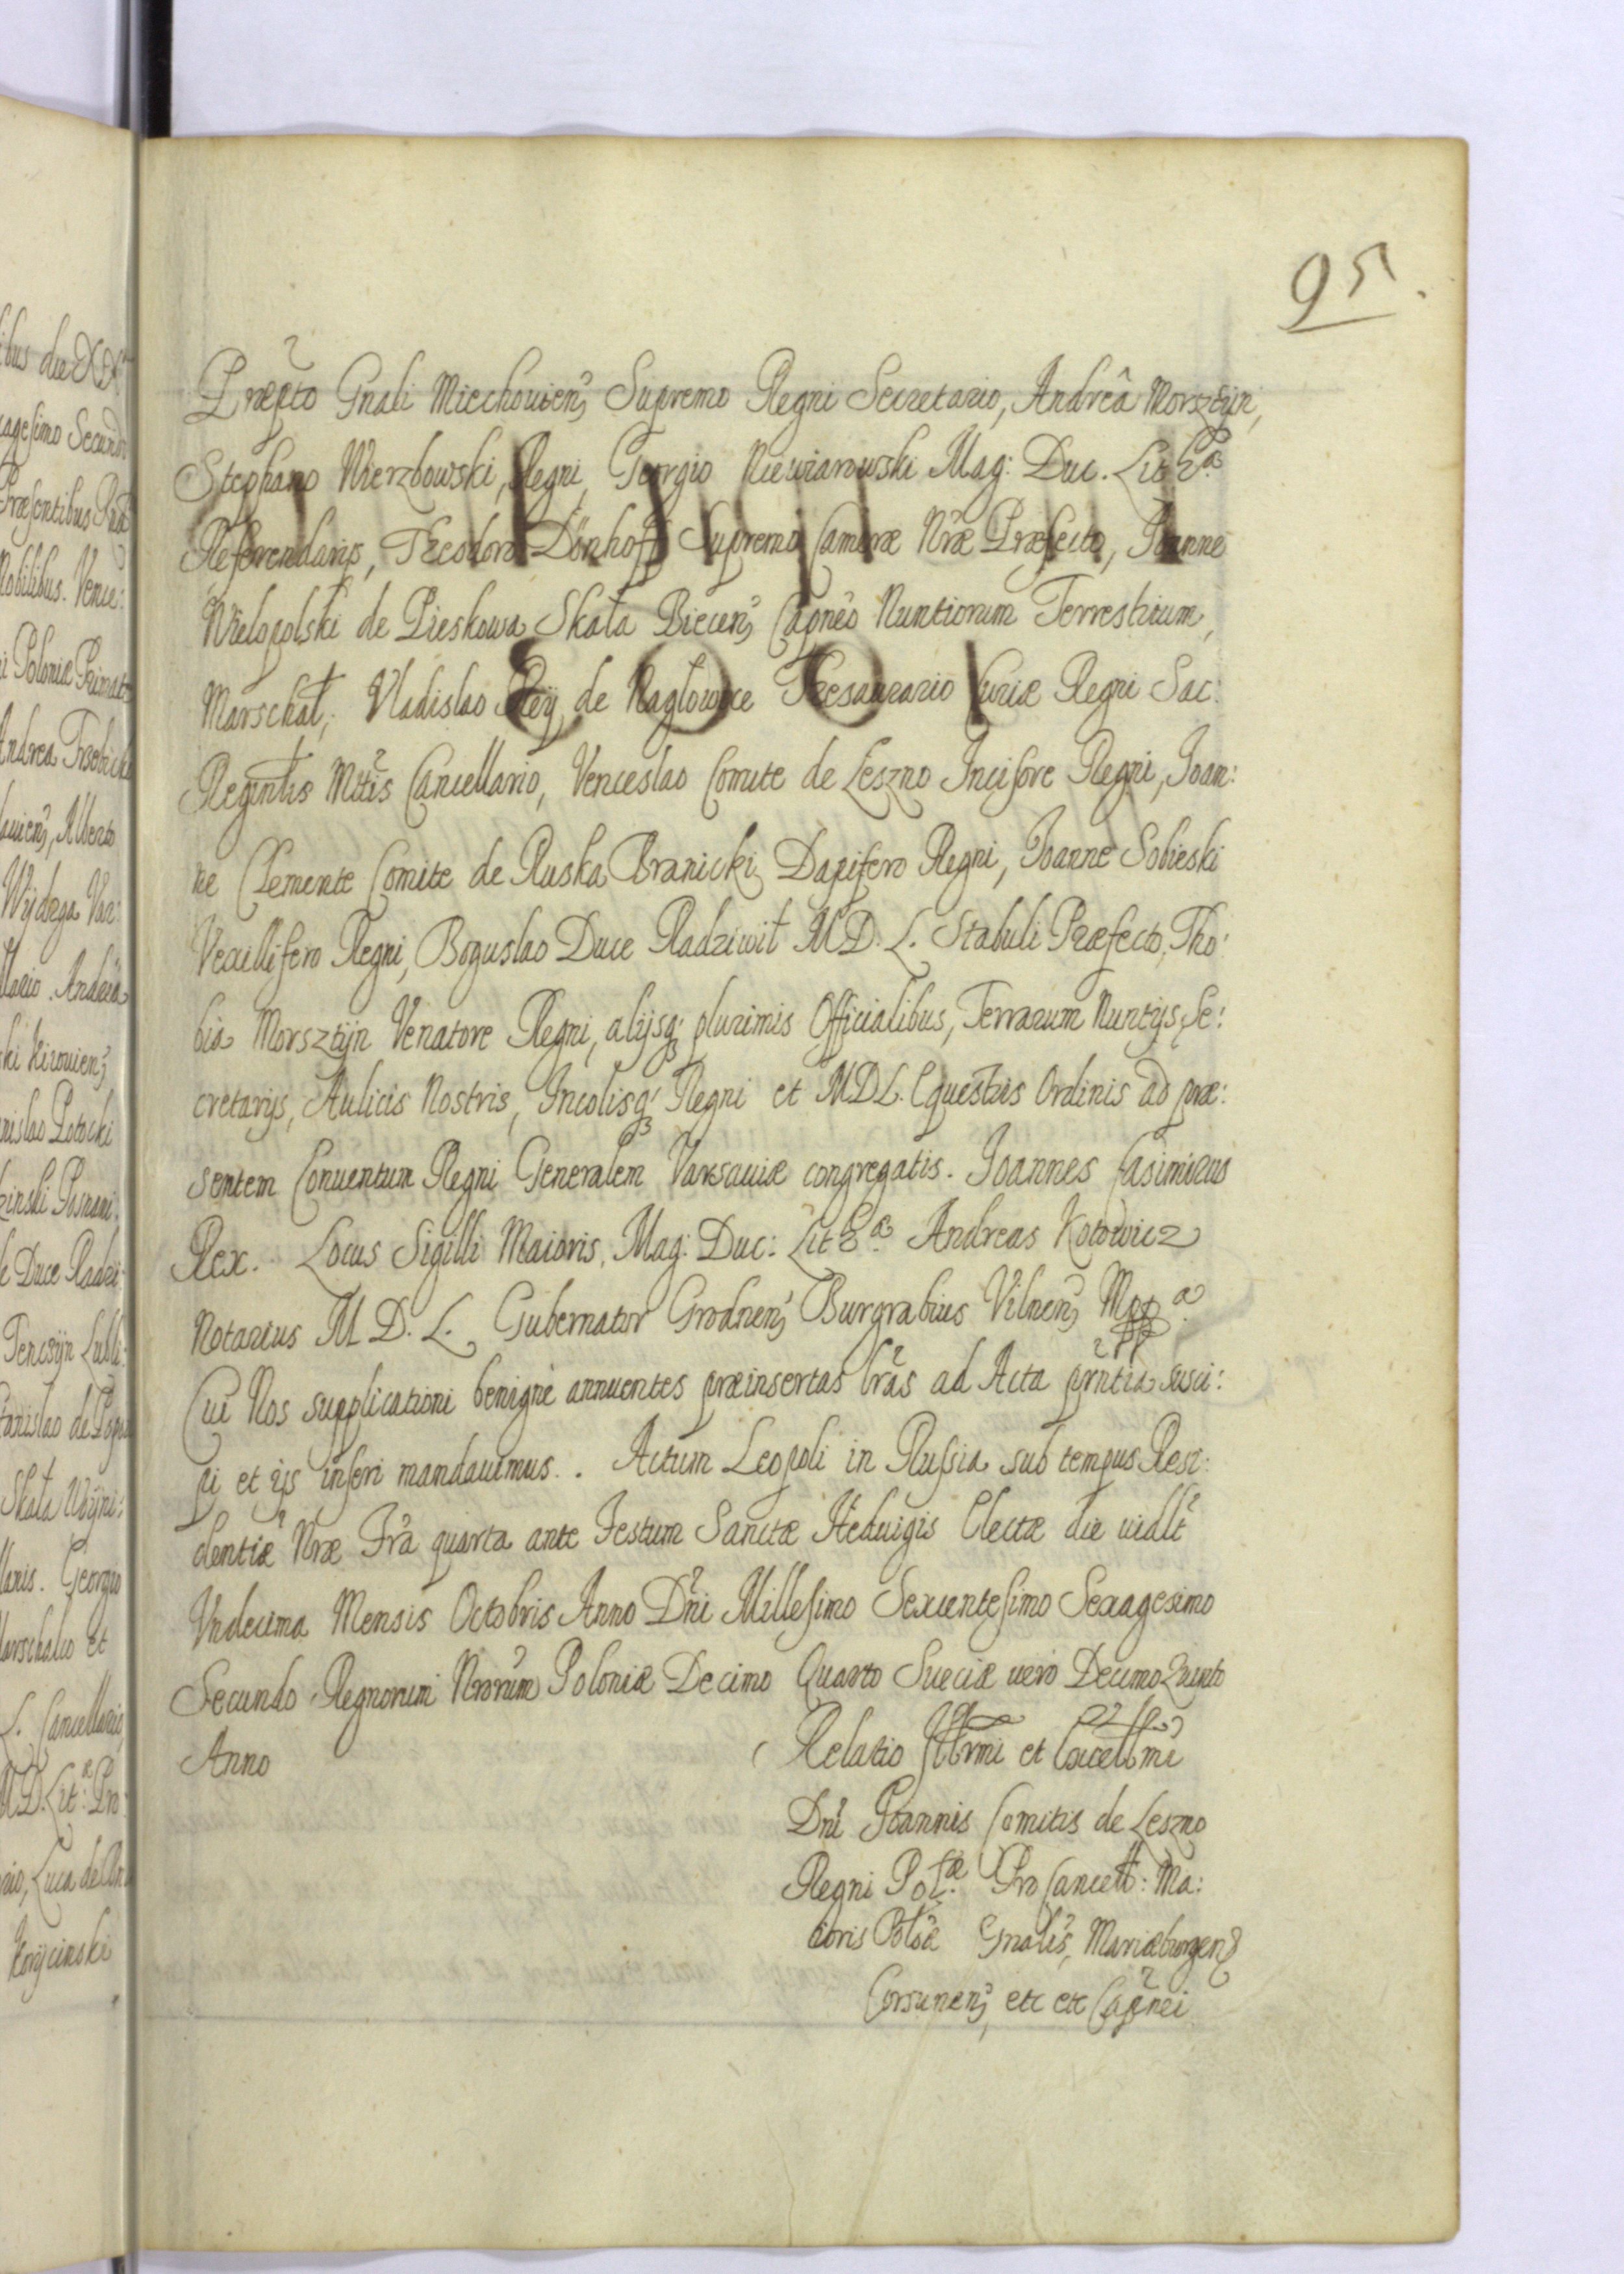 95.
Præpto Gnali Miechouien, Supremo Regni Secretario, Andreâ Morsztÿn,
Stephano Wierzbowski, Regni, Georgio Niewiarowski Mag: Duc. Litħæ
Referendarijs, Theodoro Dönhoff Supremo Cameræ Nræ Præfecto, Joanne
Wielopolski de Pieskowa Skała Biecen, Capneo Nuntiorum Terrestrium,
Marschał, Vladislao Reÿ, de Nagłowice Thesaurario Curiæ Regni Sac:
Reginalis Mttis Cancellario, Venceslao Comite de Leszno Incisore Regni, Joan:
ne Clemente Comite de Ruska Branicki Dapifero Regni, Joanne Sobieski
Vexillifero Regni, Boguslao Duce Radziwił MD. L. Stabuli Præfecto, Tho:
bia Morsztÿn Venatore Regni, alijsq; plurimis Officialibus, Terrarum Nuntijs, Se:
cretarijs, Aulicis Nostris, Incolisq; Regni et MDL. Equestris Ordinis ad præ:
sentem Conuentum Regni Generalem Varsauiæ congregatis. Joannes Casimirus
Rex. Locus Sigilli Maioris, Mag: Duc: Litħæ. Andreas Kotowicz
Notarius M D. L. Gubernator Grodnen, Burgrabius Vilnen, Mppa.
Cui Nos supplicationi benigne annuentes præinsertas lras ad Acta prntia susci:
pi et ijs inseri mandauimus. Actum Leopoli in Russia sub tempus Resi:
dentiæ Nræ Fra quarta ante Festum Sanctæ Heduigis Electæ die uidlt
Vndecima Mensis Octobris Anno Dni Millesimo Sexcentesimo Sexagesimo
Secundo Regnorum Nrorum Poloniæ Decimo Quarto Sueciæ uero Decimo Quinto
Anno
Relatio Illrmi et Excellmi
Dni Joannis Comitis de Leszno
Regni Polæ. Pro Cancell: Ma:
ioris Polæ Gnalis, Mariæburgen
Corsunen, etc etc Capnei